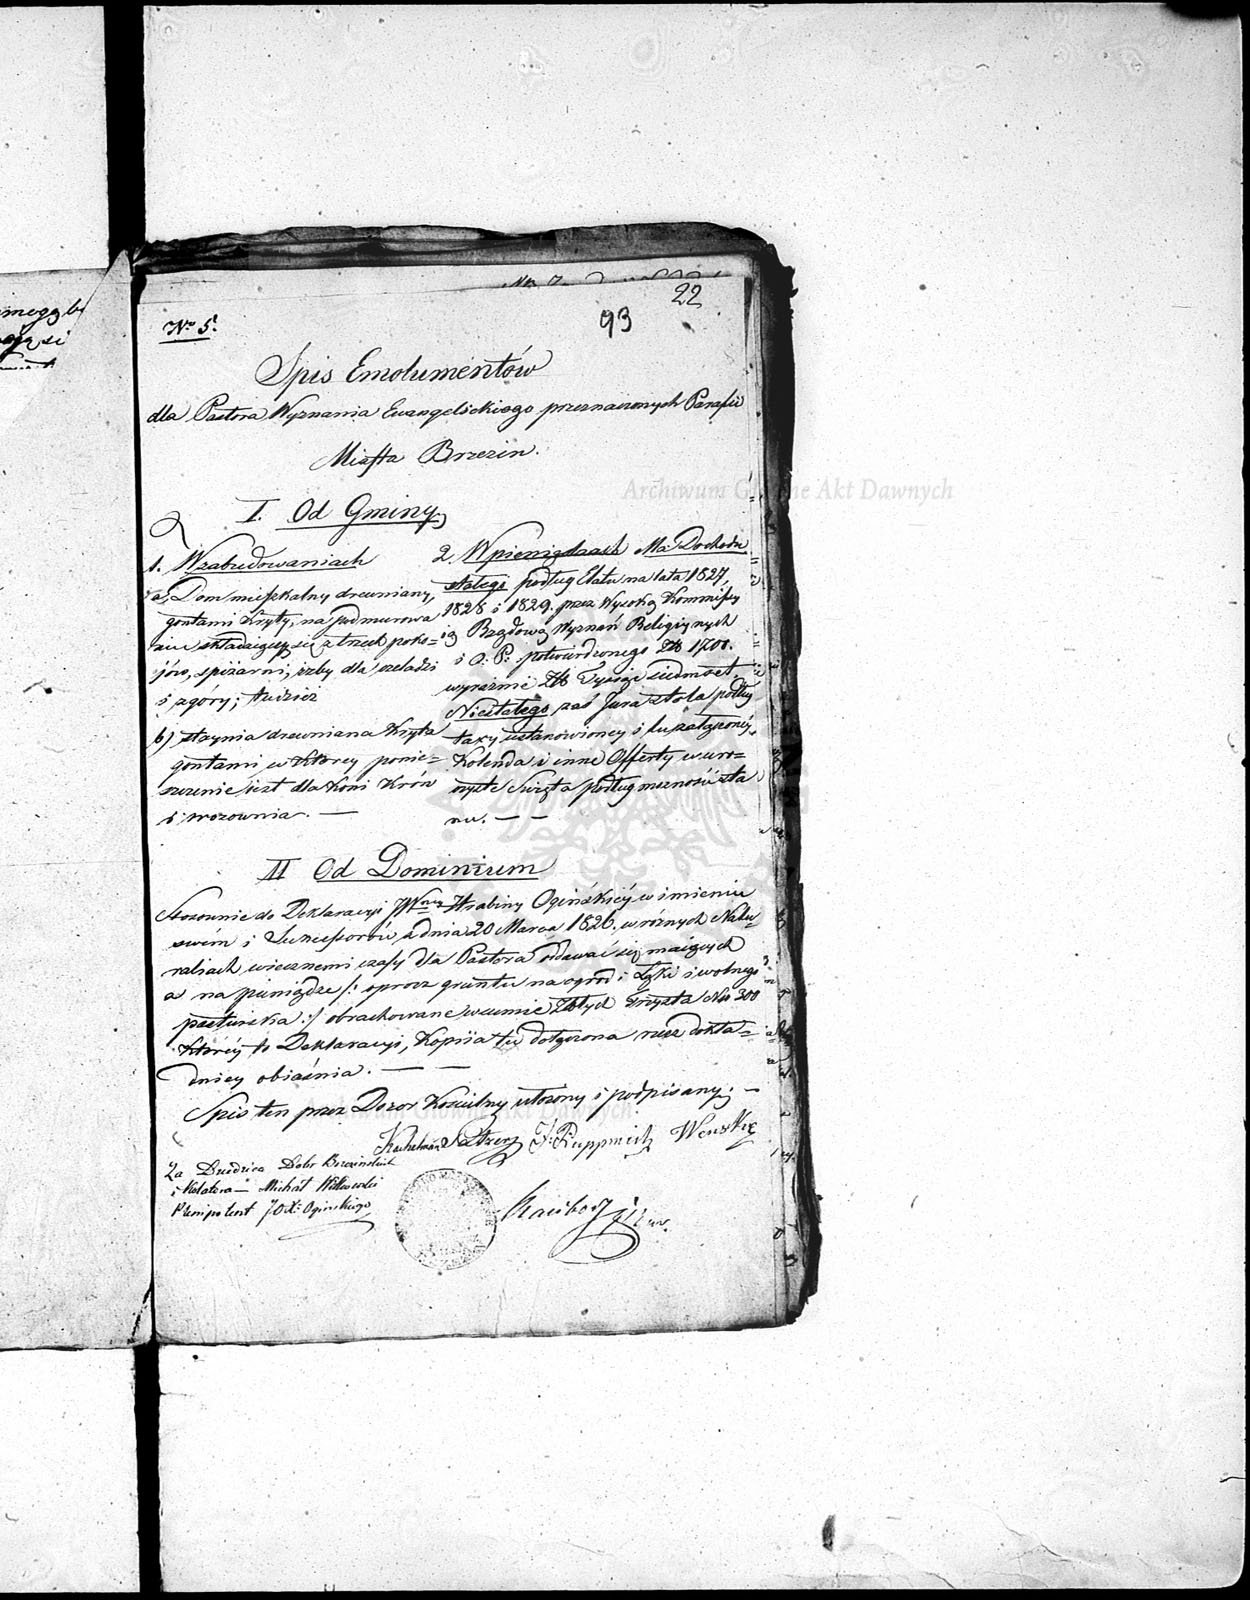 22
93
No 5.
Spis Emolumentów
dla Pastora Wyznania Ewangelickiego przeznaczonych Parafii
Miasta Brzezin.
I. Od Gminy
1. W zabudowaniach
a, Dom mieszkalny drewniany,
gontami kryty, na podmurowa
niu składaiący się z trzech poko=
jów, spiżarni, izby dla czeladzi
i z góry; tudzież
b) staynia drewniana kryta
gontami w ktorey pomie=
szczenie jest dla koni krów
i wozownia. —
2. W pieniądzach Ma Dochodu
stałego podług Etatu na lata 1827,
1828 i 1829. przez Wysoką Kommissy
ią Rządową Wyznań Religiynych
i O: P: potwierdzonego Zł 1700.
wyraźnie Zł Tysiąc siedmset
Niestałego zaś Jura stola podług
taxy ustanowioney i tu załączoney
Kolenda i inne Offerty w uro=
czyste Swięta podług możności sta
nu. — —
II Od Dominium
Stosownie do Deklaracyi JWney Hrabiny Ogińskiéy w imieniu
swém i Sukcessorów z dnia 20 Marca 1826. w różnych Natu
raliach wiecznemi czasy dla Pastora oddawać się maiących
a na pieniądze /: oprocz gruntu na ogrod i Łąki i wolnego
pastwiska :/ obrachowane w summie Złtych Trzysta Nro 300
któréy to Deklaracyi, Kopiia tu dołączona rzecz dokła=
dniey obiaśnia. — —
Spis ten przez Dozor Kościelny ułożony i podpisany. —
Za Dziedzica Dobr Brzezińskich
i Kolatora — Michał Witkowski
Plenipotent JOX: Ogińskiego
Archiwum Główne Akt Dawnych
Archiwum Główne Akt Dawnych